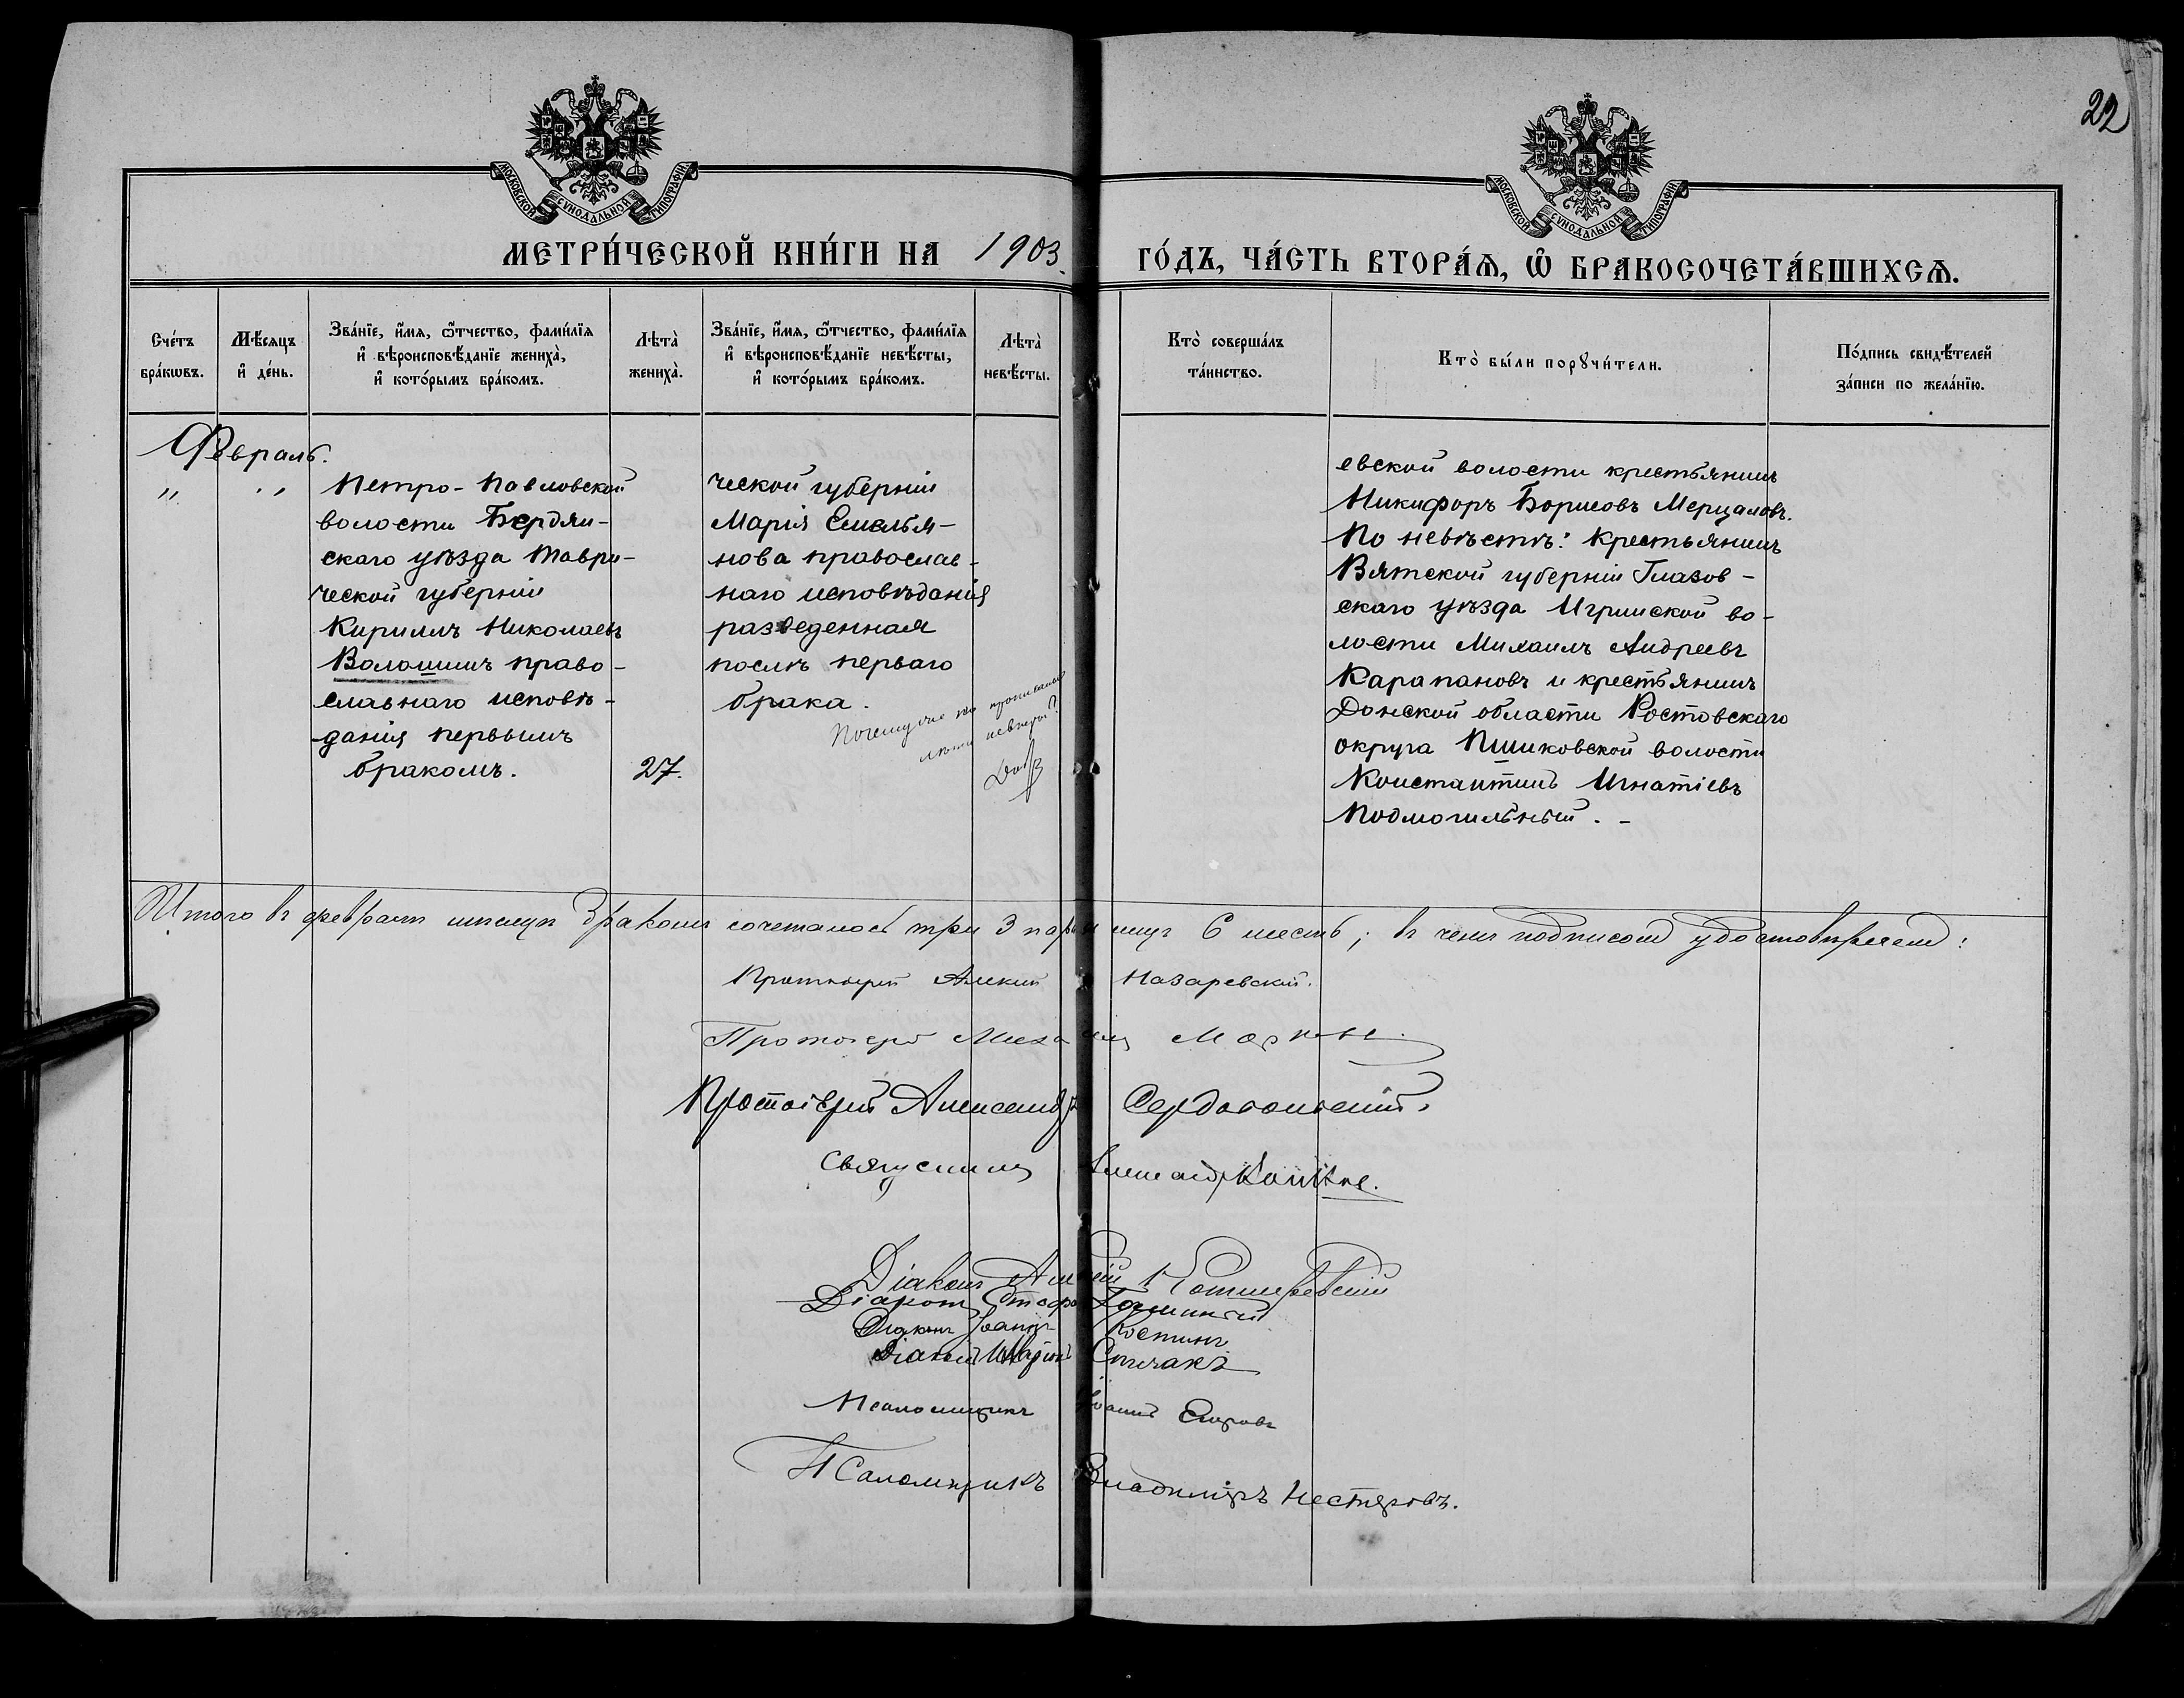 22
МОСКОВСКОЙ СѴНОДАЛЬНОЙ ТИПОГРАФІИ
МОСКОВСКОЙ СѴНОДАЛЬНОЙ ТИПОГРАФІИ
МЕТРИ́ЧЕСКОЙ КНИ́ГИ НА 1903.
ГО́ДЪ, ЧА́СТЬ ВТОРА́Ѧ, Ѡ҆ БРАКОСОЧЕТА́ВШИХСѦ.
Сче́тъ
бра́кѡвъ.
Мѣ́сяцъ
и҆ де́нь.
Зва́нїе, и҆́мѧ, ѻ҆́тчество, фами́лїѧ
и҆ вѣроисповѣ́данїе жениха̀,
и҆ кото́рымъ бра́комъ.
Лѣта̀
жениха̀.
Зва́нїе, и҆́мѧ, ѻ҆́тчество, фами́лїѧ
и҆ вѣроисповѣ́данїе невѣ́сты,
и҆ кото́рымъ бра́комъ.
Лѣта̀
невѣ́сты.
Кто̀ соверша́лъ
та́инство.
Кто̀ бы́ли порꙋчи́тели.
По́дпись свидѣ́телей
за́писи по жела́нїю.
Февраль.
" "
Петро-Павловской
волости Бердян-
скаго уѣзда Таври-
ческой губерніи
Кириллъ Николаевъ
Волошинъ право-
славнаго исповѣ-
данія первымъ
бракомъ.
27.
ческой губерніи
Марія Емелья-
нова православ-
наго исповѣданія
разведенная
послѣ перваго
брака.
Почему не
евской волости крестьянинъ
Никифоръ Борисовъ Мерцаловъ.
По невѣстѣ: крестьянинъ
Вятской губерніи Глазов-
скаго уѣзда Игринской во-
лости Михаилъ Андреевъ
Карапановъ и крестьянинъ
Донской области Ростовскаго
округа Пшиковской волости
Константинъ Игнатіевъ
Подмогильный. -
Итого въ февралѣ мѣсяцѣ бракомъ сочеталось три 3 пары лицъ 6 шесть; въ чемъ подписомъ удостовѣряемъ:
Протоіерей Алексій Назаревскій.
Протоіерей Михаилъ
Протоіерей Александръ Сердобольскій.
Священникъ Александръ
Діаконъ Алексій
Діаконъ Стефанъ
Діаконъ Іоаннъ Костинъ
Діаконъ Спичакъ
Псаломщикъ Іоаннъ Егоровъ
Псаломщикъ Владиміръ Нестеровъ.